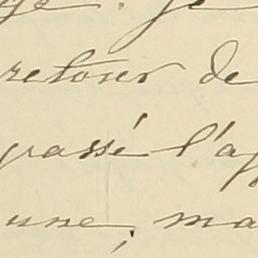 retour de
passé l'a
une, ma